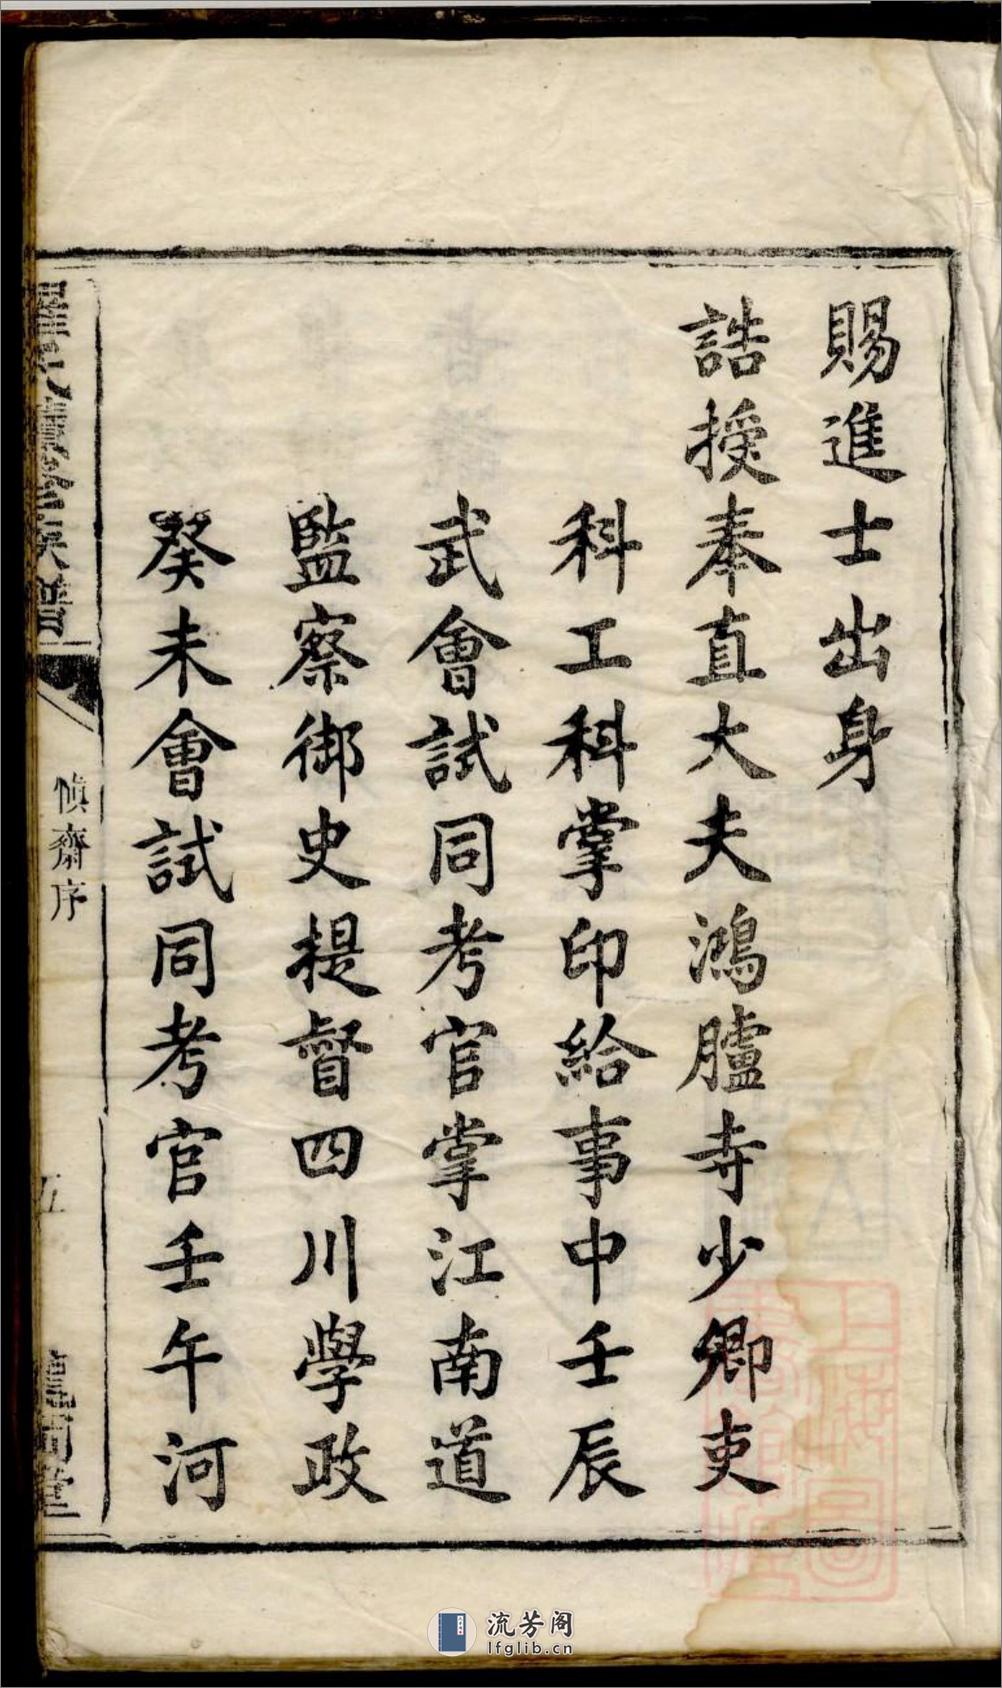 賜進士出身
誥授奉直大夫鴻臚寺少卿吏
科工科掌印給事中壬辰
武會試同考官掌江南道
監察御史提督四川學政
癸未會試同考官壬午河
羅氏續修族譜
慎齋序
五
上海圖書館藏
流芳阁
lfglib.cn